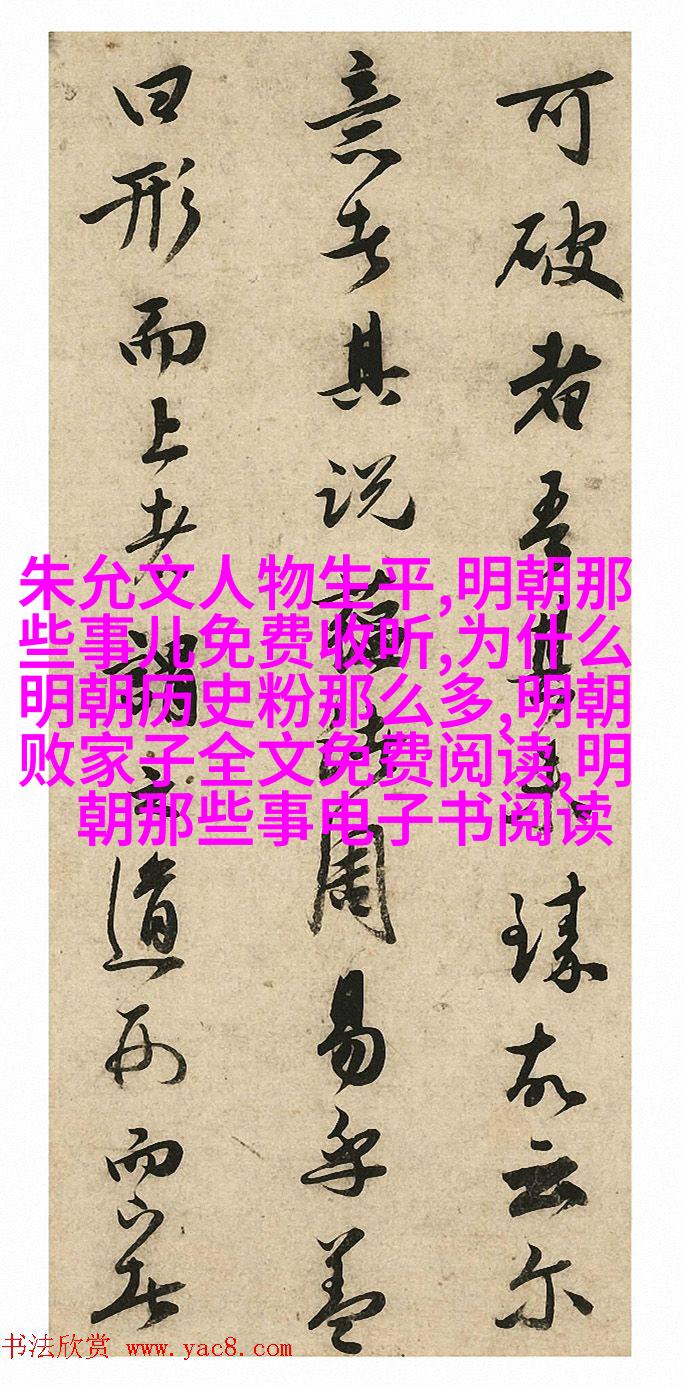 可破者吾臻故云尔
意者其说周易乎盖
曰形而上者謂之道形而下者
朱允文人物生平,明朝那
些事儿免费收听,为什么
明朝历史粉那么多,明朝
败家子全文免费阅读,明
朝那些事电子书阅读
书法欣赏 www.yac8.com